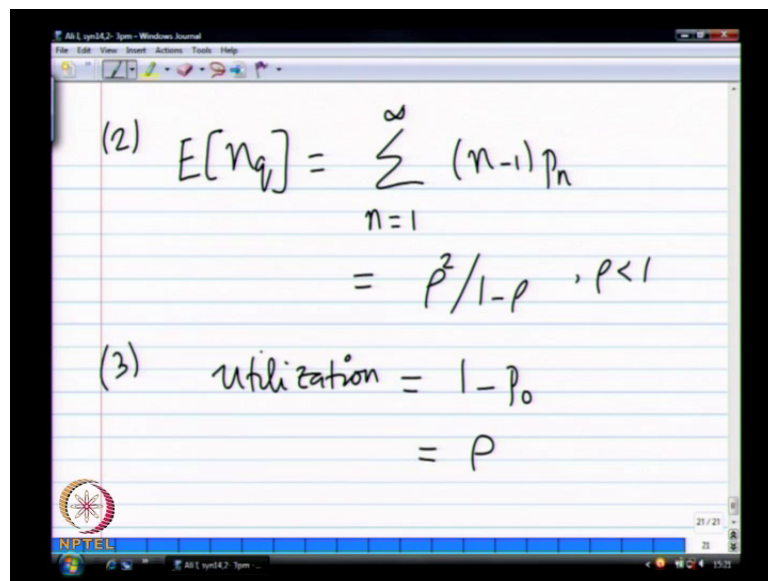 Ali I, syn14,2- 3pm - Windows Journal
File Edit View Insert Actions Tools Help
(2) E[n_q] = ∞ ∑ n=1 (n-1) p_n
= ρ²/1-ρ , ρ<1
(3) utilization = 1 - p_0
= ρ
NPTEL
21 / 21
21
Ali I, syn14,2- 3pm -...
15:21